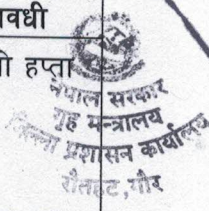 वधी
ी हप्ता
नेपाल सरकार
गृह मन्त्रालय
जिल्ला प्रशासन कार्यालय
रौतहट,गौर